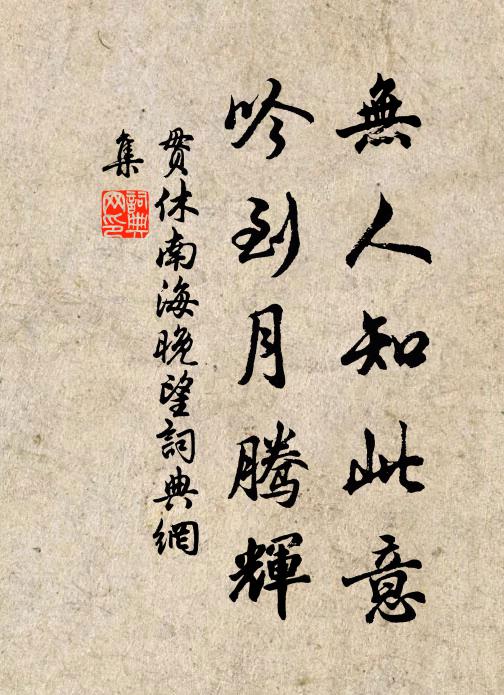 無人知此意
吟到月騰輝
貫休南海晚望詞典網
集
詞典
网印